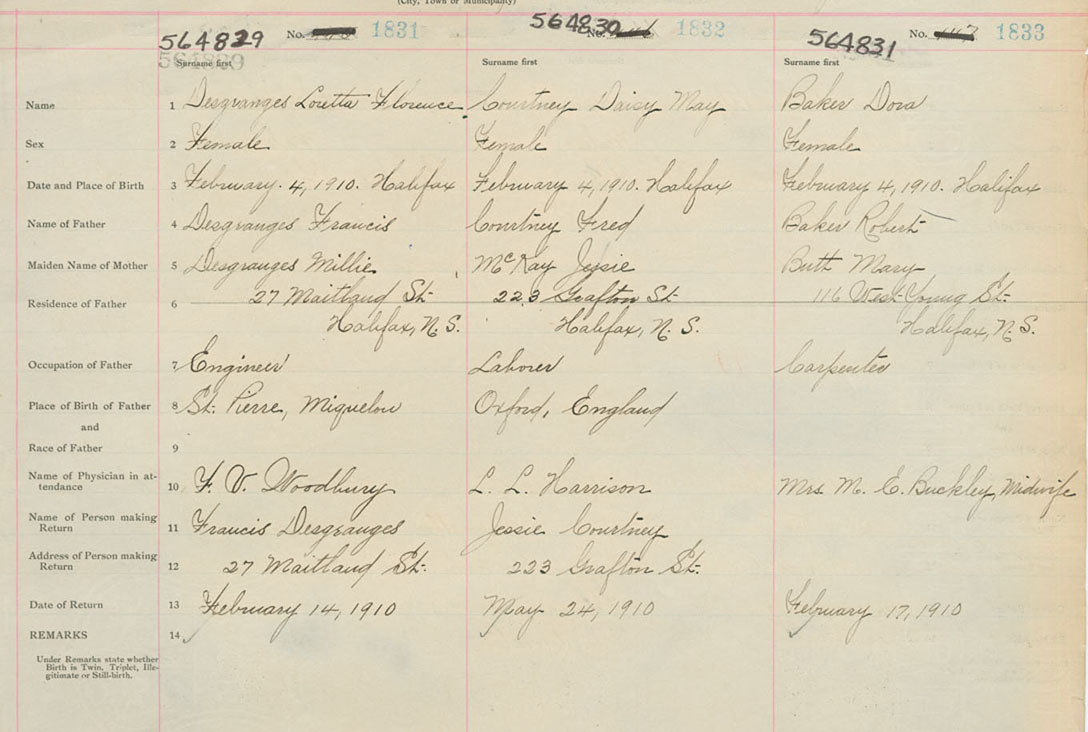 (City, Town or Municipality)
564829 No. 1831
564830 No. 1832
564831 No. 1833
Surname first Surname first Surname first
Name 1 Desgranges Loretta Florence Courtney Daisy May Baker Dora
Sex 2 Female Female Female
Date and Place of Birth 3 February. 4, 1910. Halifax February 4, 1910. Halifax February 4, 1910. Halifax
Name of Father 4 Desgranges Francis Courtney Fred Baker Robert
Maiden Name of Mother 5 Desgranges Millie McKay Jessie Buth Mary
Residence of Father 6 27 Maitland St. 223 Grafton St. 116 West Young St.
Halifax, N. S. Halifax, N. S. Halifax, N. S.
Occupation of Father 7 Engineer Laborer Carpenter
Place of Birth of Father 8 St. Pierre, Miquelon Oxford, England
and
Race of Father 9
Name of Physician in at-
tendance 10 F. V. Woodbury L. L. Harrison Mrs. M. E. Buckley, Midwife
Name of Person making
Return 11 Francis Desgranges Jessie Courtney
Address of Person making
Return 12 27 Maitland St. 223 Grafton St.
Date of Return 13 February 14, 1910 May 24, 1910 February 17, 1910
REMARKS 14
Under Remarks state whether
Birth is Twin, Triplet, Ille-
gitimate or Still-birth.